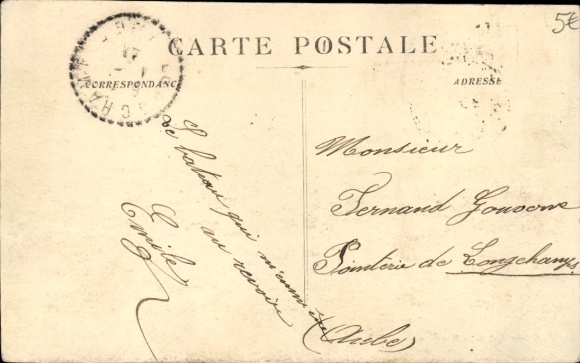 5€
CARTE POSTALE
CORRESPONDANCE
ADRESSE
Le bateau qui m'emmène
au revoir
Emile
Monsieur
Fernand
de Longchamps
(Aube)